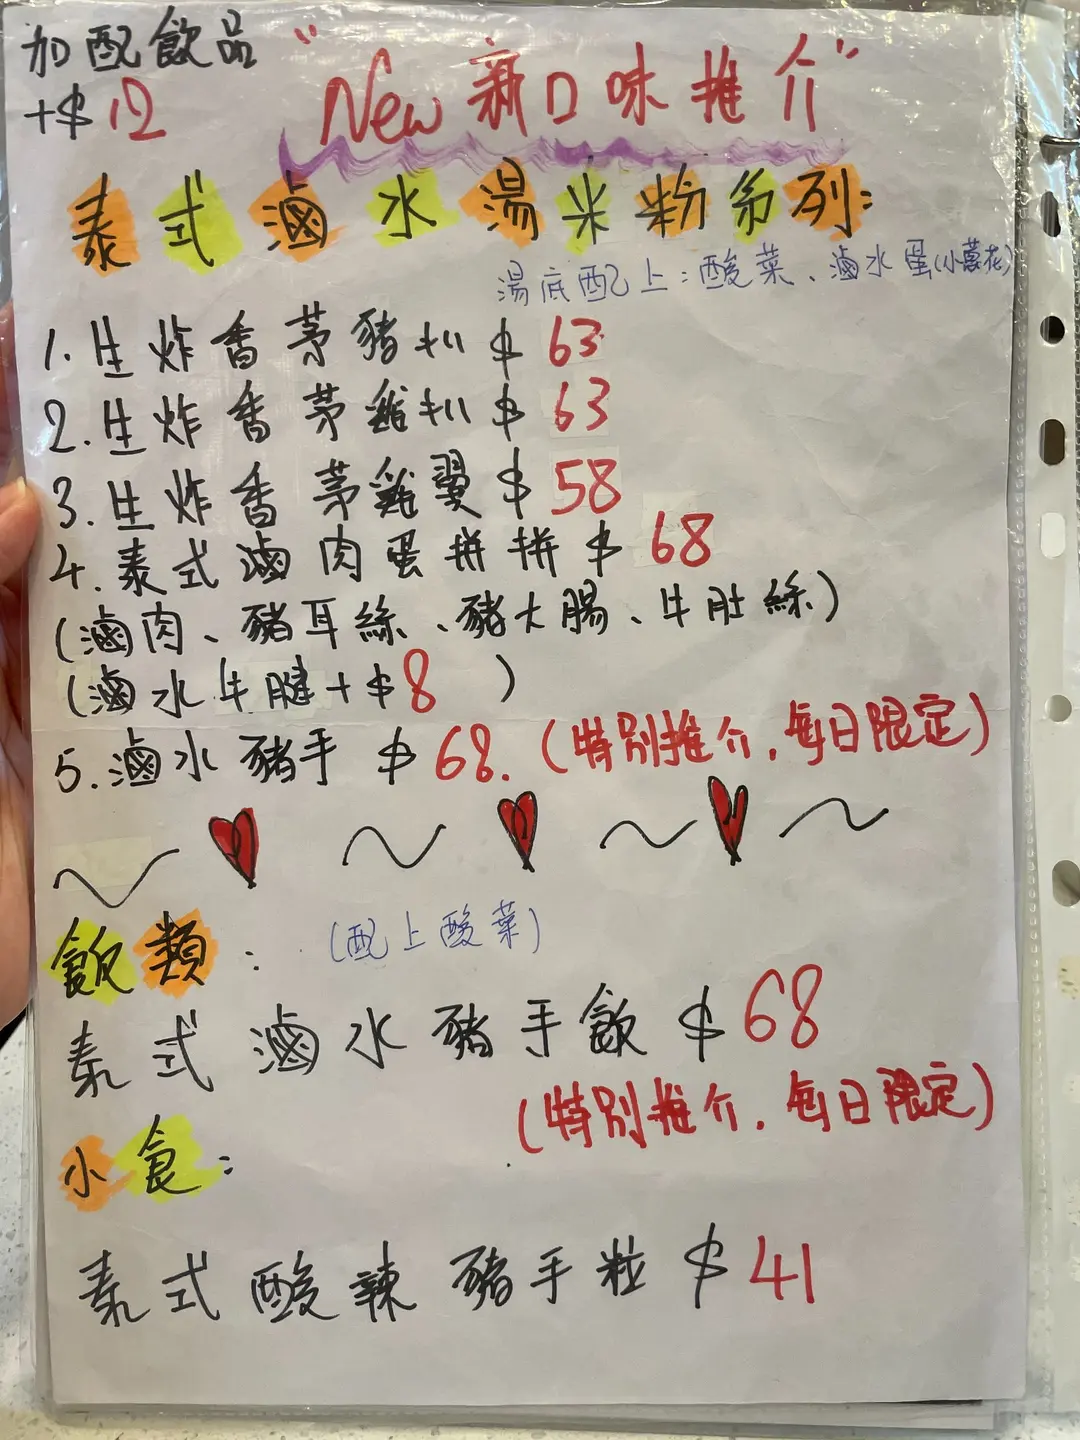 加配飲品
+$12
"New 新口味推介"
泰式滷水湯米粉系列:
湯底配上:酸菜、滷水蛋(小蔥花)
1.生炸香茅豬扒$63
2.生炸香茅雞扒$63
3.生炸香茅雞翼$58
4.泰式滷肉蛋拼拼$68
(滷肉、豬耳絲、豬大腸、牛肚絲)
(滷水牛腱+$8 )
5.滷水豬手 $68.(特別推介.每日限定)
飯類: (配上酸菜)
泰式滷水豬手飯$68
(特別推介.每日限定)
小食:
泰式酸辣豬手粒$41